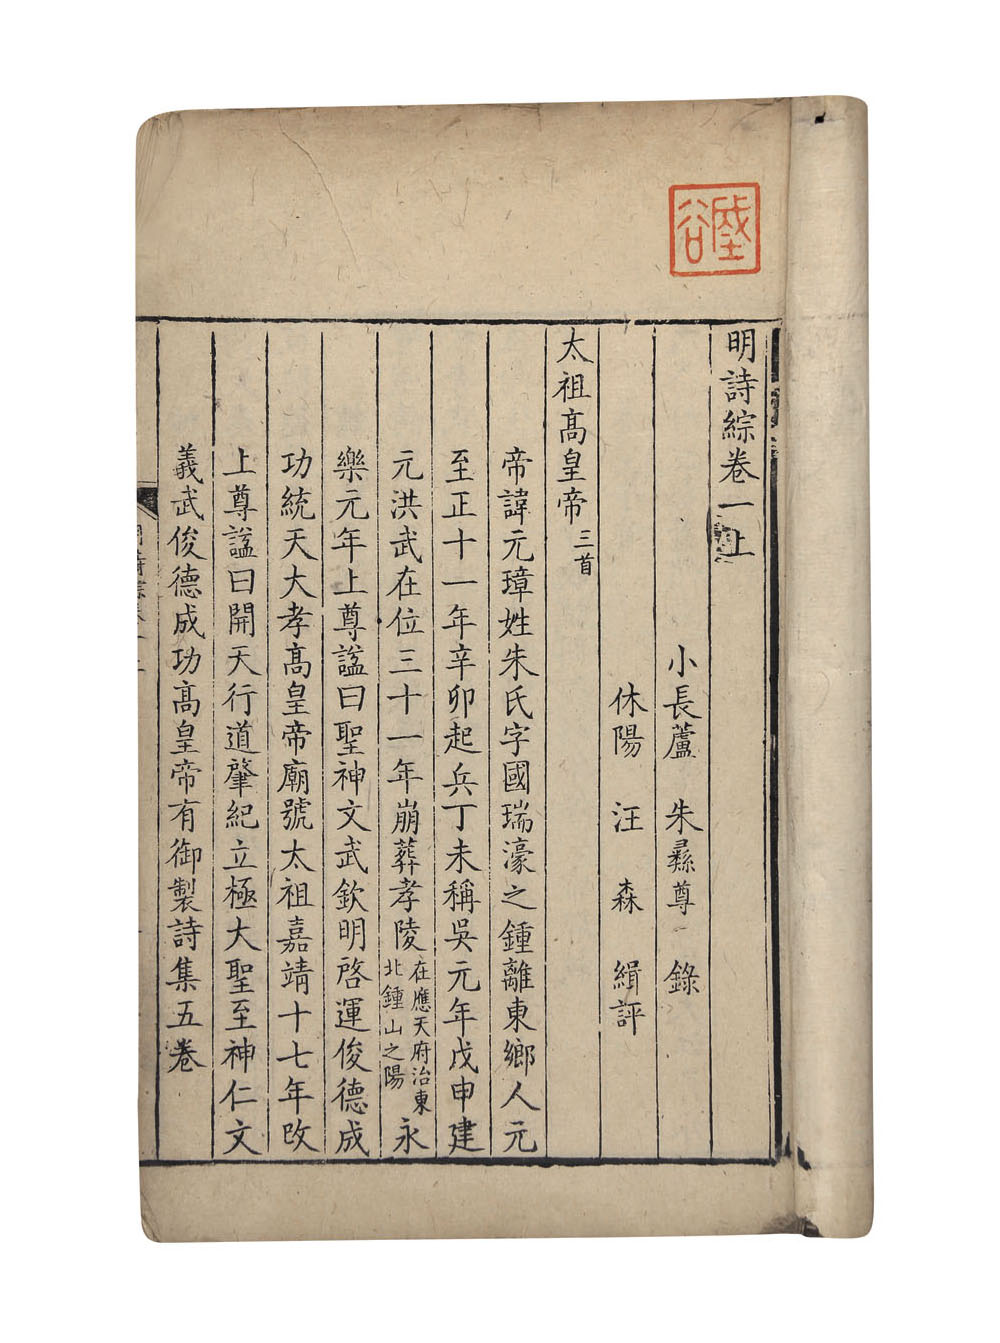 明詩綜卷一上
小長蘆 朱彝尊 錄
休陽 汪 森 緝評
太祖高皇帝 三首
帝諱元璋姓朱氏字國瑞濠之鍾離東鄉人元
至正十一年辛卯起兵丁未稱吳元年戊申建
元洪武在位三十一年崩葬孝陵在應天府治東北鍾山之陽永
樂元年上尊謚曰聖神文武欽明啓運俊德成
功統天大孝高皇帝廟號太祖嘉靖十七年改
上尊謚曰開天行道肇紀立極大聖至神仁文
義武俊德成功高皇帝有御製詩集五卷